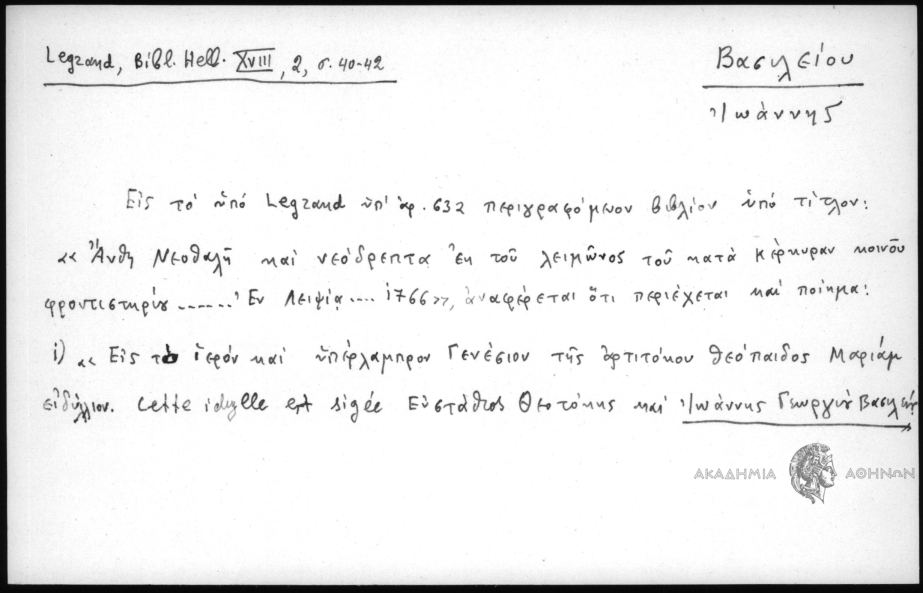 Legrand, Bibl. Hell. XVIII, 2, σ. 40-42
Βασιλείου
Ἰωάννης
Εἰς τὸ ὑπό Legrand ὑπ' ἀρ. 632 περιγραφόμενον βιβλίον ὑπό τίτλον:
«Ἄνθη Νεοθαλῆ καί νεόδρεπτα ἐκ τοῦ λειμῶνος τοῦ κατά Κέρκυραν κοινοῦ
φροντιστηρίου ....... Ἐν Λειψίᾳ .... 1766», ἀναφέρεται ὅτι περιέχεται καί ποίημα:
i) «Εἰς τὸ ἱερόν καί ὑπέρλαμπρον Γενέσιον τῆς ἀρτιτόκου θεόπαιδος Μαριάμ
εἰδύλλιον. Cette idylle est sigée Εὐστάθιος Θεοτόκης καί Ἰωάννης Γεωργίου Βασιλείου»
ΑΚΑΔΗΜΙΑ ΑΘΗΝΩΝ